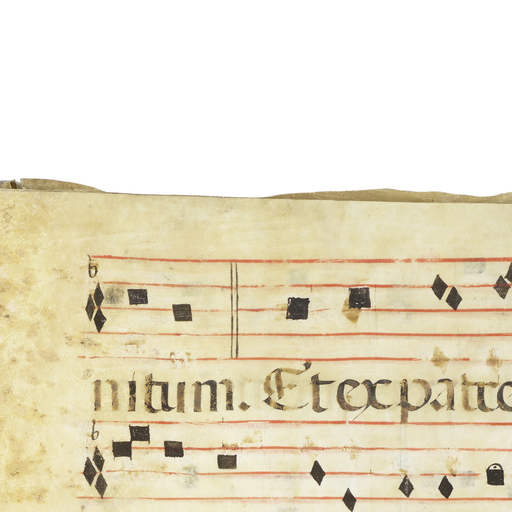 nitum. Et ex patre